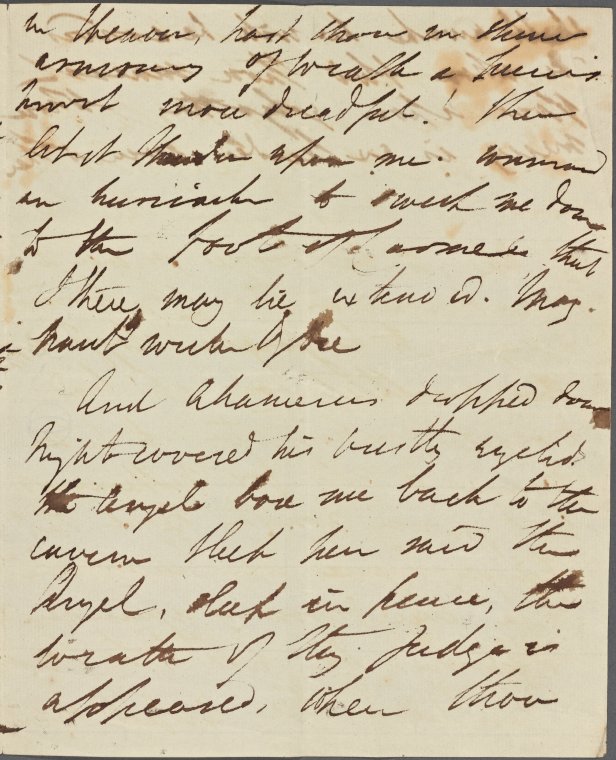 in Heaven, hast thou in thine
armoury of wrath a punish
ment more dreadful! then
let it thunder upon me. command
an hurricane to sweep me down
to the foot of Carmel that
I there may lie extended. may
pant writhe & die
And Ahasuerus dropped down
Night covered his bristly eyelid.
the Angel bore me back to the
cavern sleep here said the
Angel, sleep in peace, the
wrath of thy Judge is
appeased, when thou